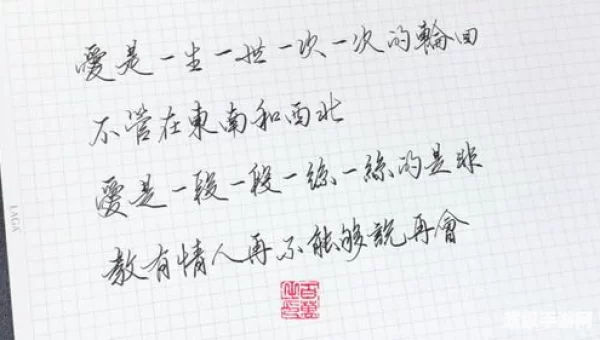 愛是一生一世一次一次的輪回
不管在東南和西北
愛是一段一段一絲一絲的是非
教有情人再不能够說再會
LAGA